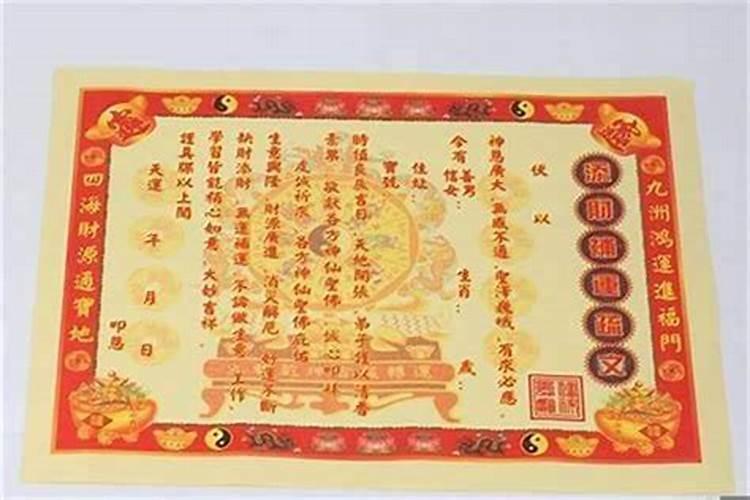 九洲鴻運進福門
添財補運疏文
伏以
神恩廣大 無感不通 聖澤巍峨 有求必應
今有善男信女： 生肖： 歲：
住址：
寶號：
時值良辰吉日 天地開張 弟子以清香
素果 敬獻各方神仙聖佛 誠心叩拜
虔誠祈求 各方神仙聖佛庇佑
生意興隆 財源廣進 消災解厄 好運不斷
缺財添財 無運補運 不論做生意、工作、
學習皆能稱心如意 大妙吉祥
謹具疏以上聞
天運 年 月 日 叩恩
四海財源通寶地